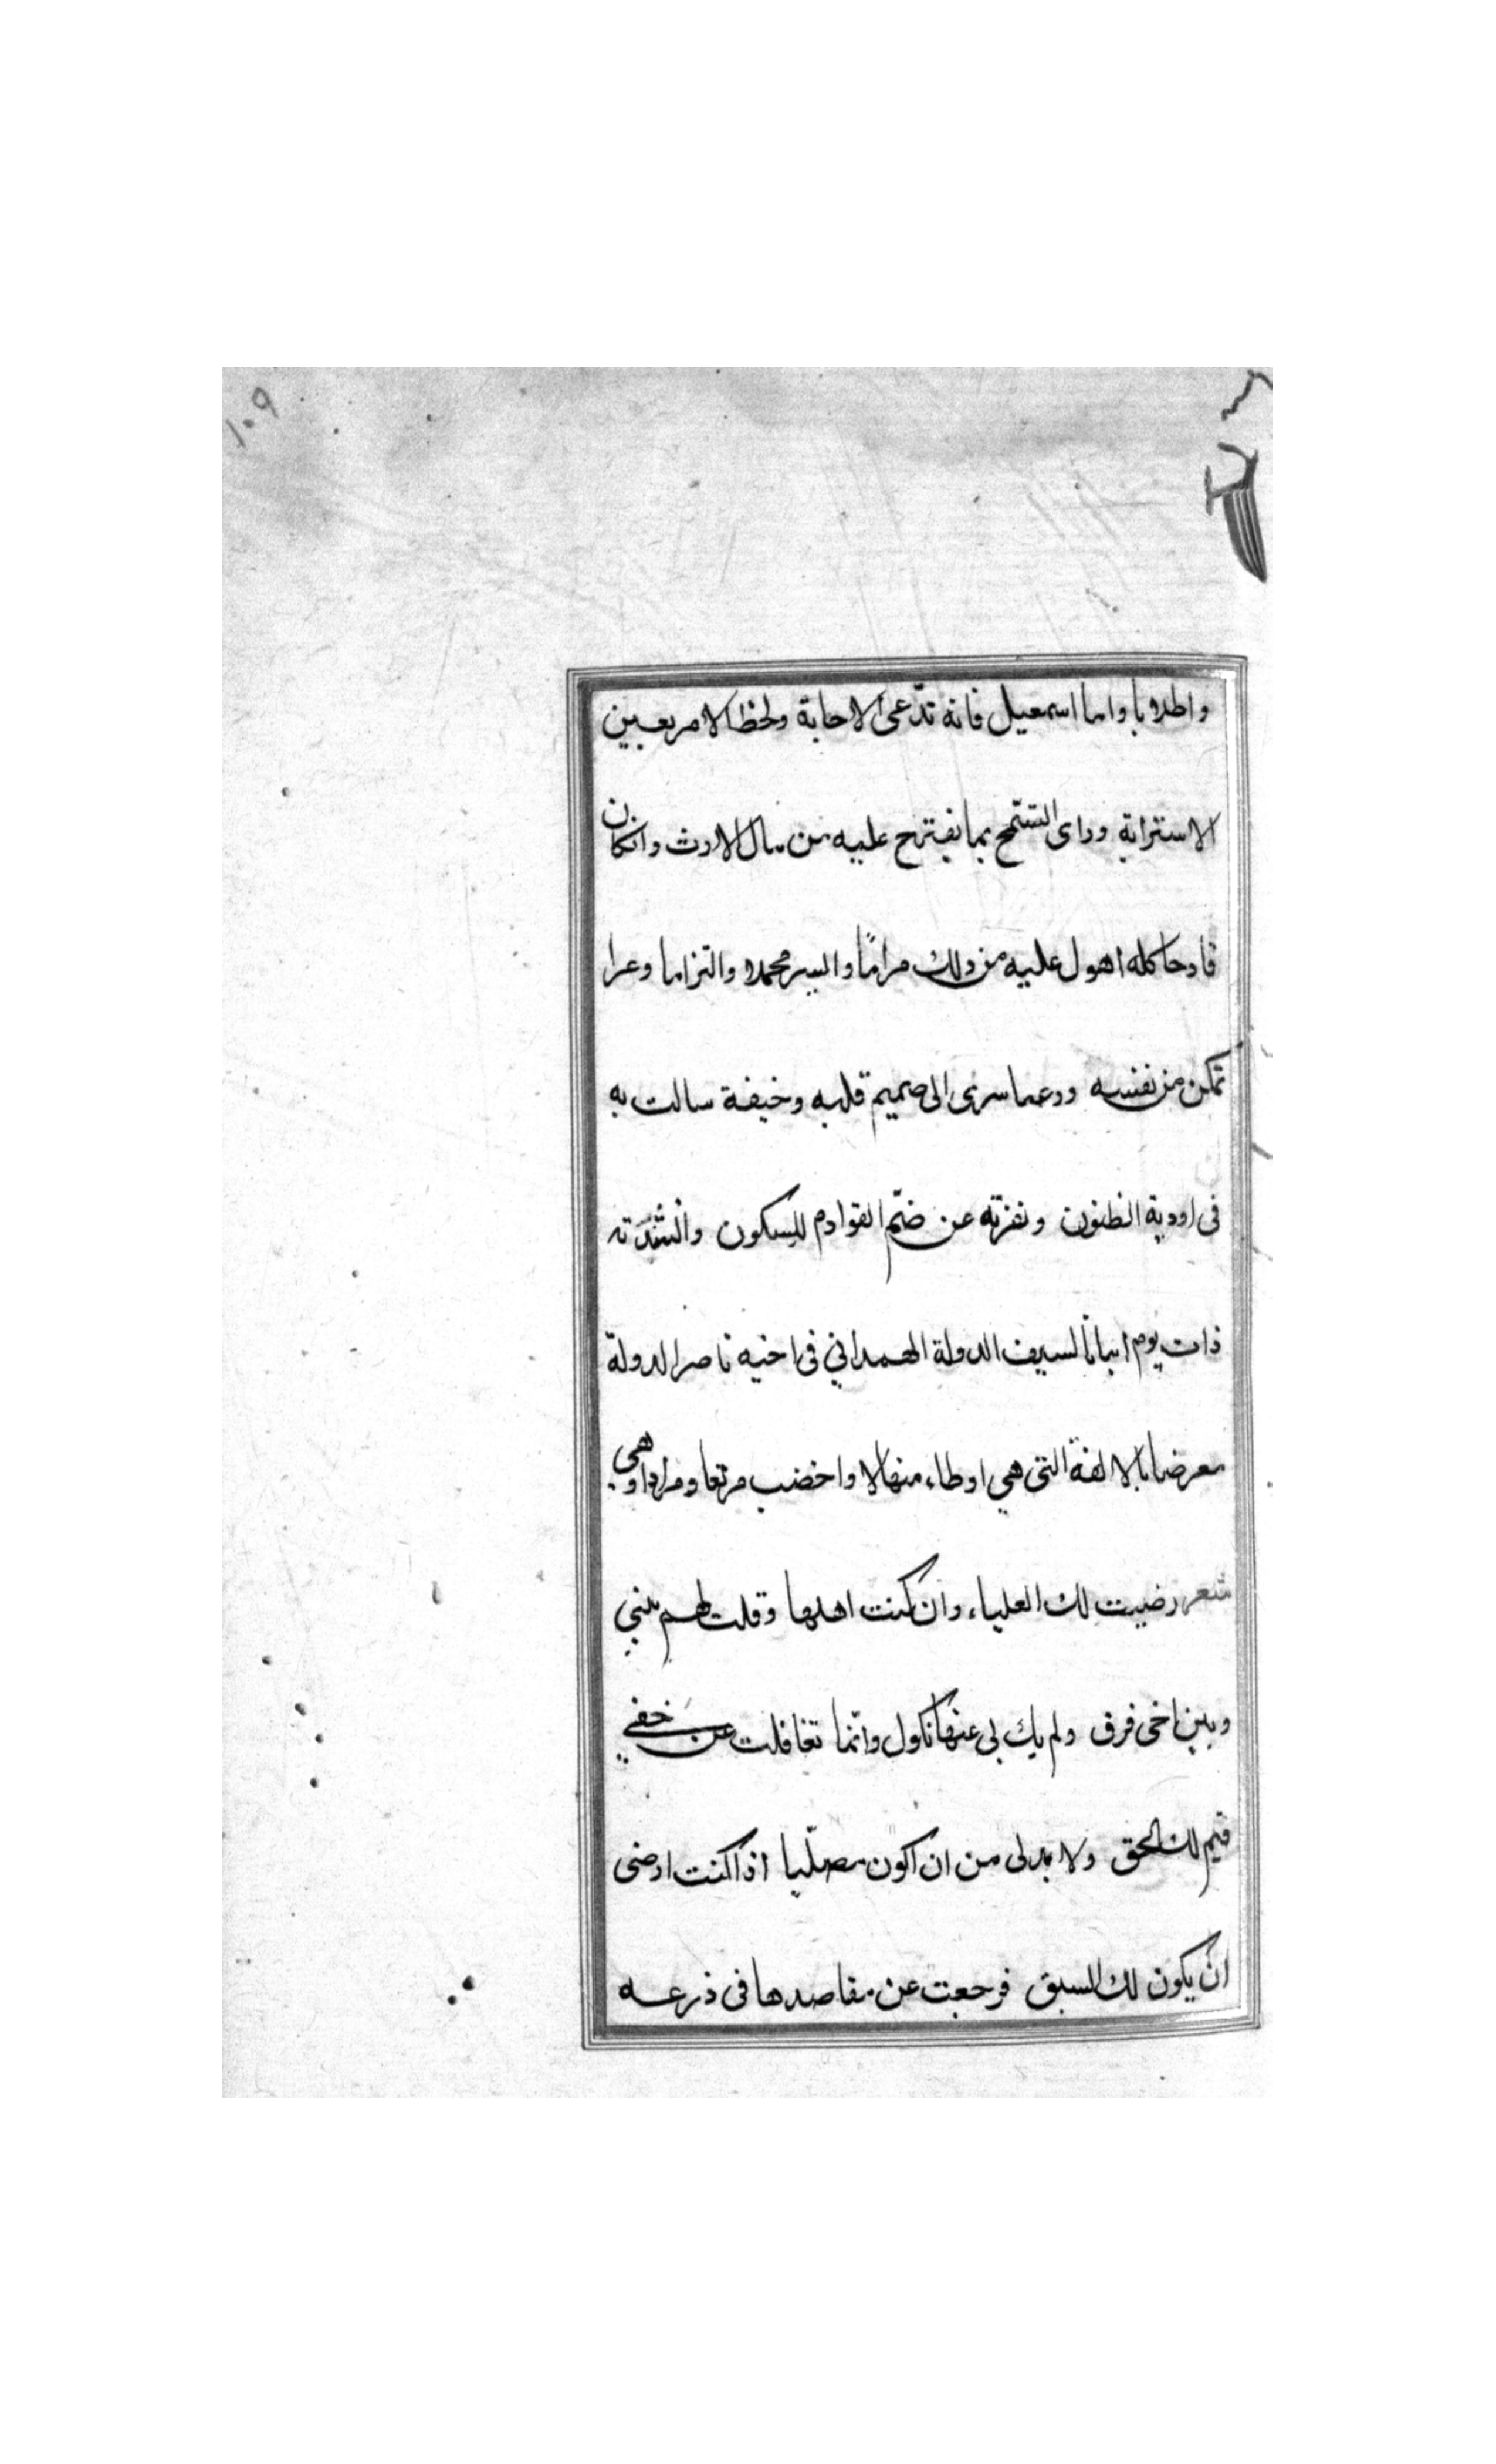 ١٠٩
واطلابا واما اسمعيل فانه تدّعى الاجابة ولحظ الامر بعين
الاسترابة وراى التسّمح بما يقترح عليه من مال الارث وانكان
فادحا كله اهول عليه من ذلك مراماً وايسر محملا والتزاما وعرا
تمكن من نفسه ورعبا سرى الى صميم قلبه وخيفة سالت به
فى اودية الظنون ونفرته عن ضمّ القوادم للسكون وانشدته
ذات يوم ابياتا لسيف الدولة الهمداني فى اخيه ناصر الدولة
معرضا بالالفة التى هي اوطاء منهالا واخضب مرتعا ومرادا وهي
شعر رضيت لك العلياء وان كنت اهلها وقلت لهم بينى
وبين اخى فرق ولم يك لى عنها نكول وانّما تغافلت عن خفي
فيم لك الحق ولا بد لى من ان اكون مصلّيا اذا كنت ارضى
ان يكون لك السبق فرجعت عن مقاصدها فى ذرعه